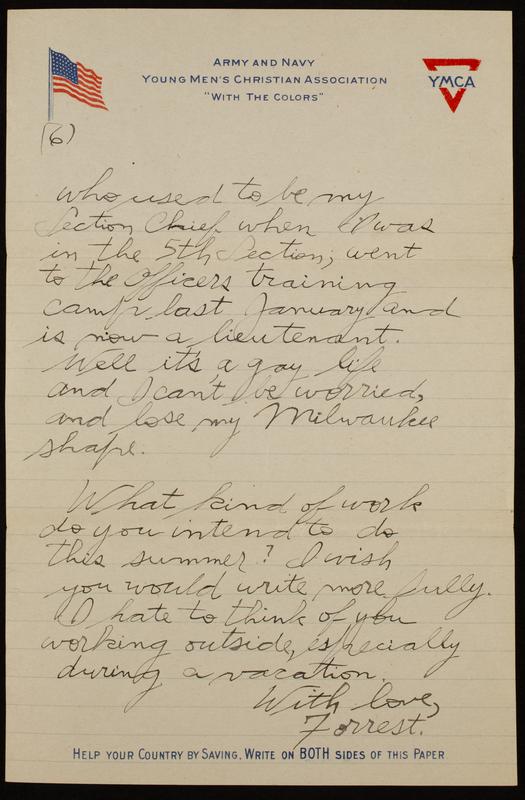 ARMY AND NAVY
YOUNG MEN'S CHRISTIAN ASSOCIATION
"WITH THE COLORS"
YMCA
(6)
who used to be my
Section Chief when I was
in the 5th Section, went
to the Officers training
camp last January and
is now a lieutenant.
Well it's a gay life
and I can't be worried,
and lose my Milwaukee
shape.
What kind of work
do you intend to do
this summer? I wish
you would write more fully.
I hate to think of you
working outside, especially
during a vacation.
With love,
Forrest.
HELP YOUR COUNTRY BY SAVING. WRITE ON BOTH SIDES OF THIS PAPER